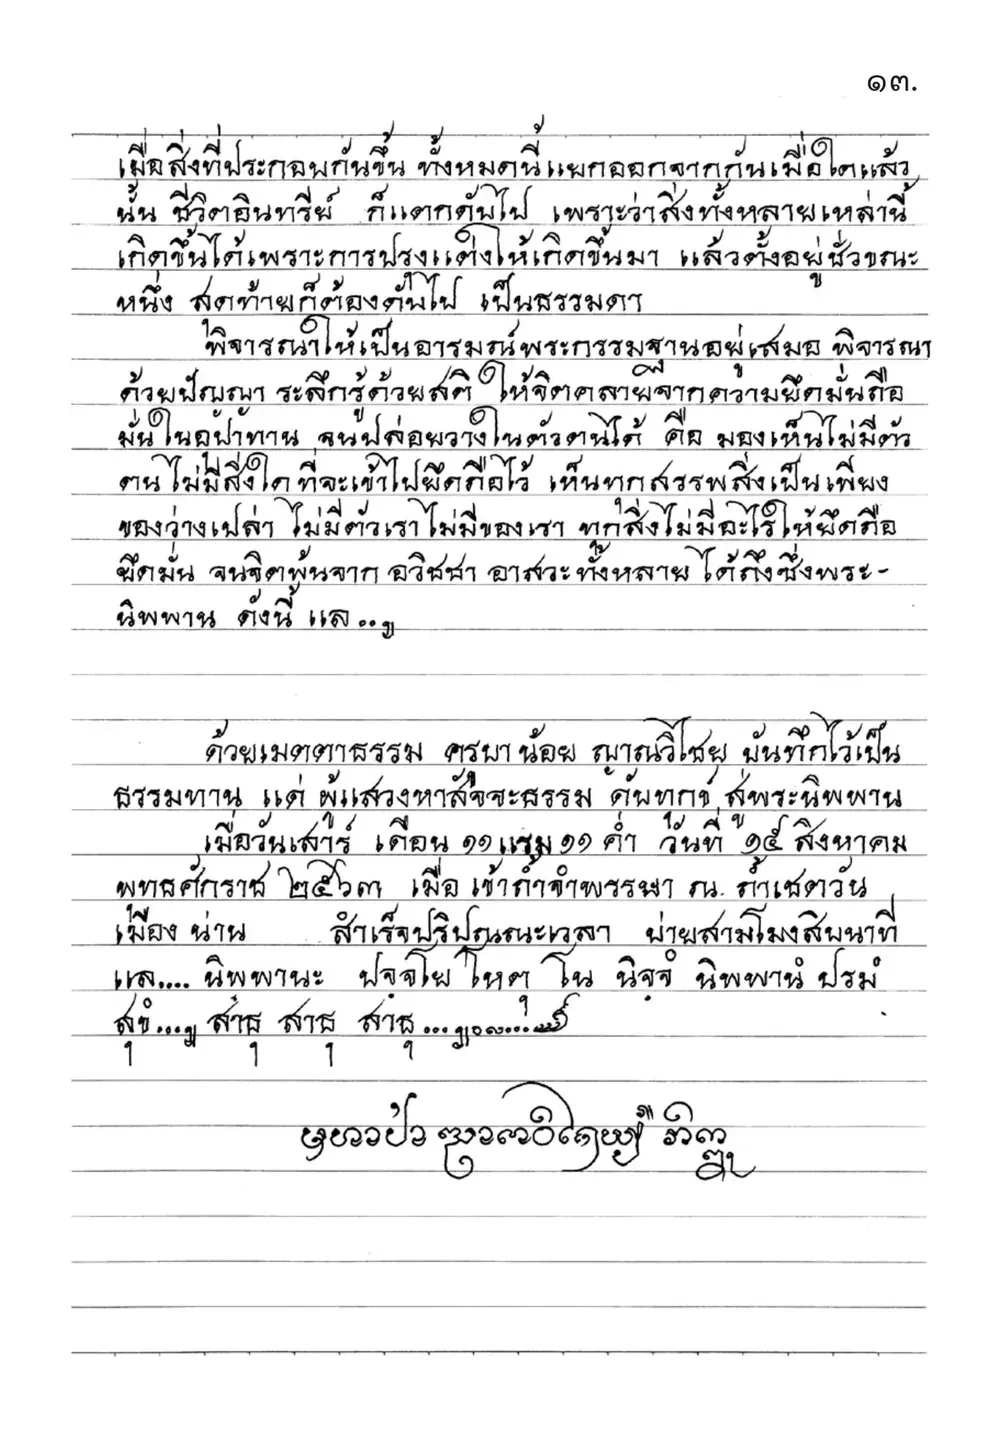 ๑๓.
เมื่อสิ่งที่ประกอบกันขึ้น ทั้งหมดนี้แยกออกจากกันเมื่อใดแล้ว
นั้น ชีวิตอินทรีย์ ก็แตกดับไป เพราะว่าสิ่งทั้งหลายเหล่านี้
เกิดขึ้นได้เพราะการปรุงแต่งให้เกิดขึ้นมา แล้วตั้งอยู่ชั่วขณะ
หนึ่ง สุดท้ายก็ต้องดับไป เป็นธรรมดา
พิจารณาให้เป็นอารมณ์พระกรรมฐานอยู่เสมอ พิจารณา
ด้วยปัญญา ระลึกรู้ด้วยสติ ให้จิตคลายจากความยึดมั่นถือ
มั่นในอุปาทาน จนปล่อยวางในตัวตนได้ คือ มองเห็นไม่มีตัว
ตน ไม่มีสิ่งใด ที่จะเข้าไปยึดถือไว้ เห็นทุกสรรพสิ่งเป็นเพียง
ของว่างเปล่า ไม่มีตัวเราไม่มีของเรา ทุกสิ่งไม่มีอะไรให้ยึดถือ
ยึดมั่น จนจิตพ้นจาก อวิชชา อาสวะทั้งหลาย ได้ถึงซึ่งพระ-
นิพพาน ดังนี้ แล..ฯ
ด้วยเมตตาธรรม ครูบาน้อย ญาณวิไชย บันทึกไว้เป็น
ธรรมทาน แด่ ผู้แสวงหาสัจจะธรรม ดับทุกข์ สู่พระนิพพาน
เมื่อวันเสาร์ เดือน ๑๑ แรม ๑๑ ค่ำ วันที่ ๑๕ สิงหาคม
พุทธศักราช ๒๕๖๓ เมื่อ เข้าถ้ำจำพรรษา ณ. ถ้ำเชตวัน
เมือง น่าน สำเร็จปริปุณณะเวลา บ่ายสามโมงสิบนาที
แล.... นิพพานะ ปจฺจโย โหตุ โน นิจฺจํ นิพพานํ ปรมํ
สุขํ...ฯ สาธุ สาธุ สาธุ